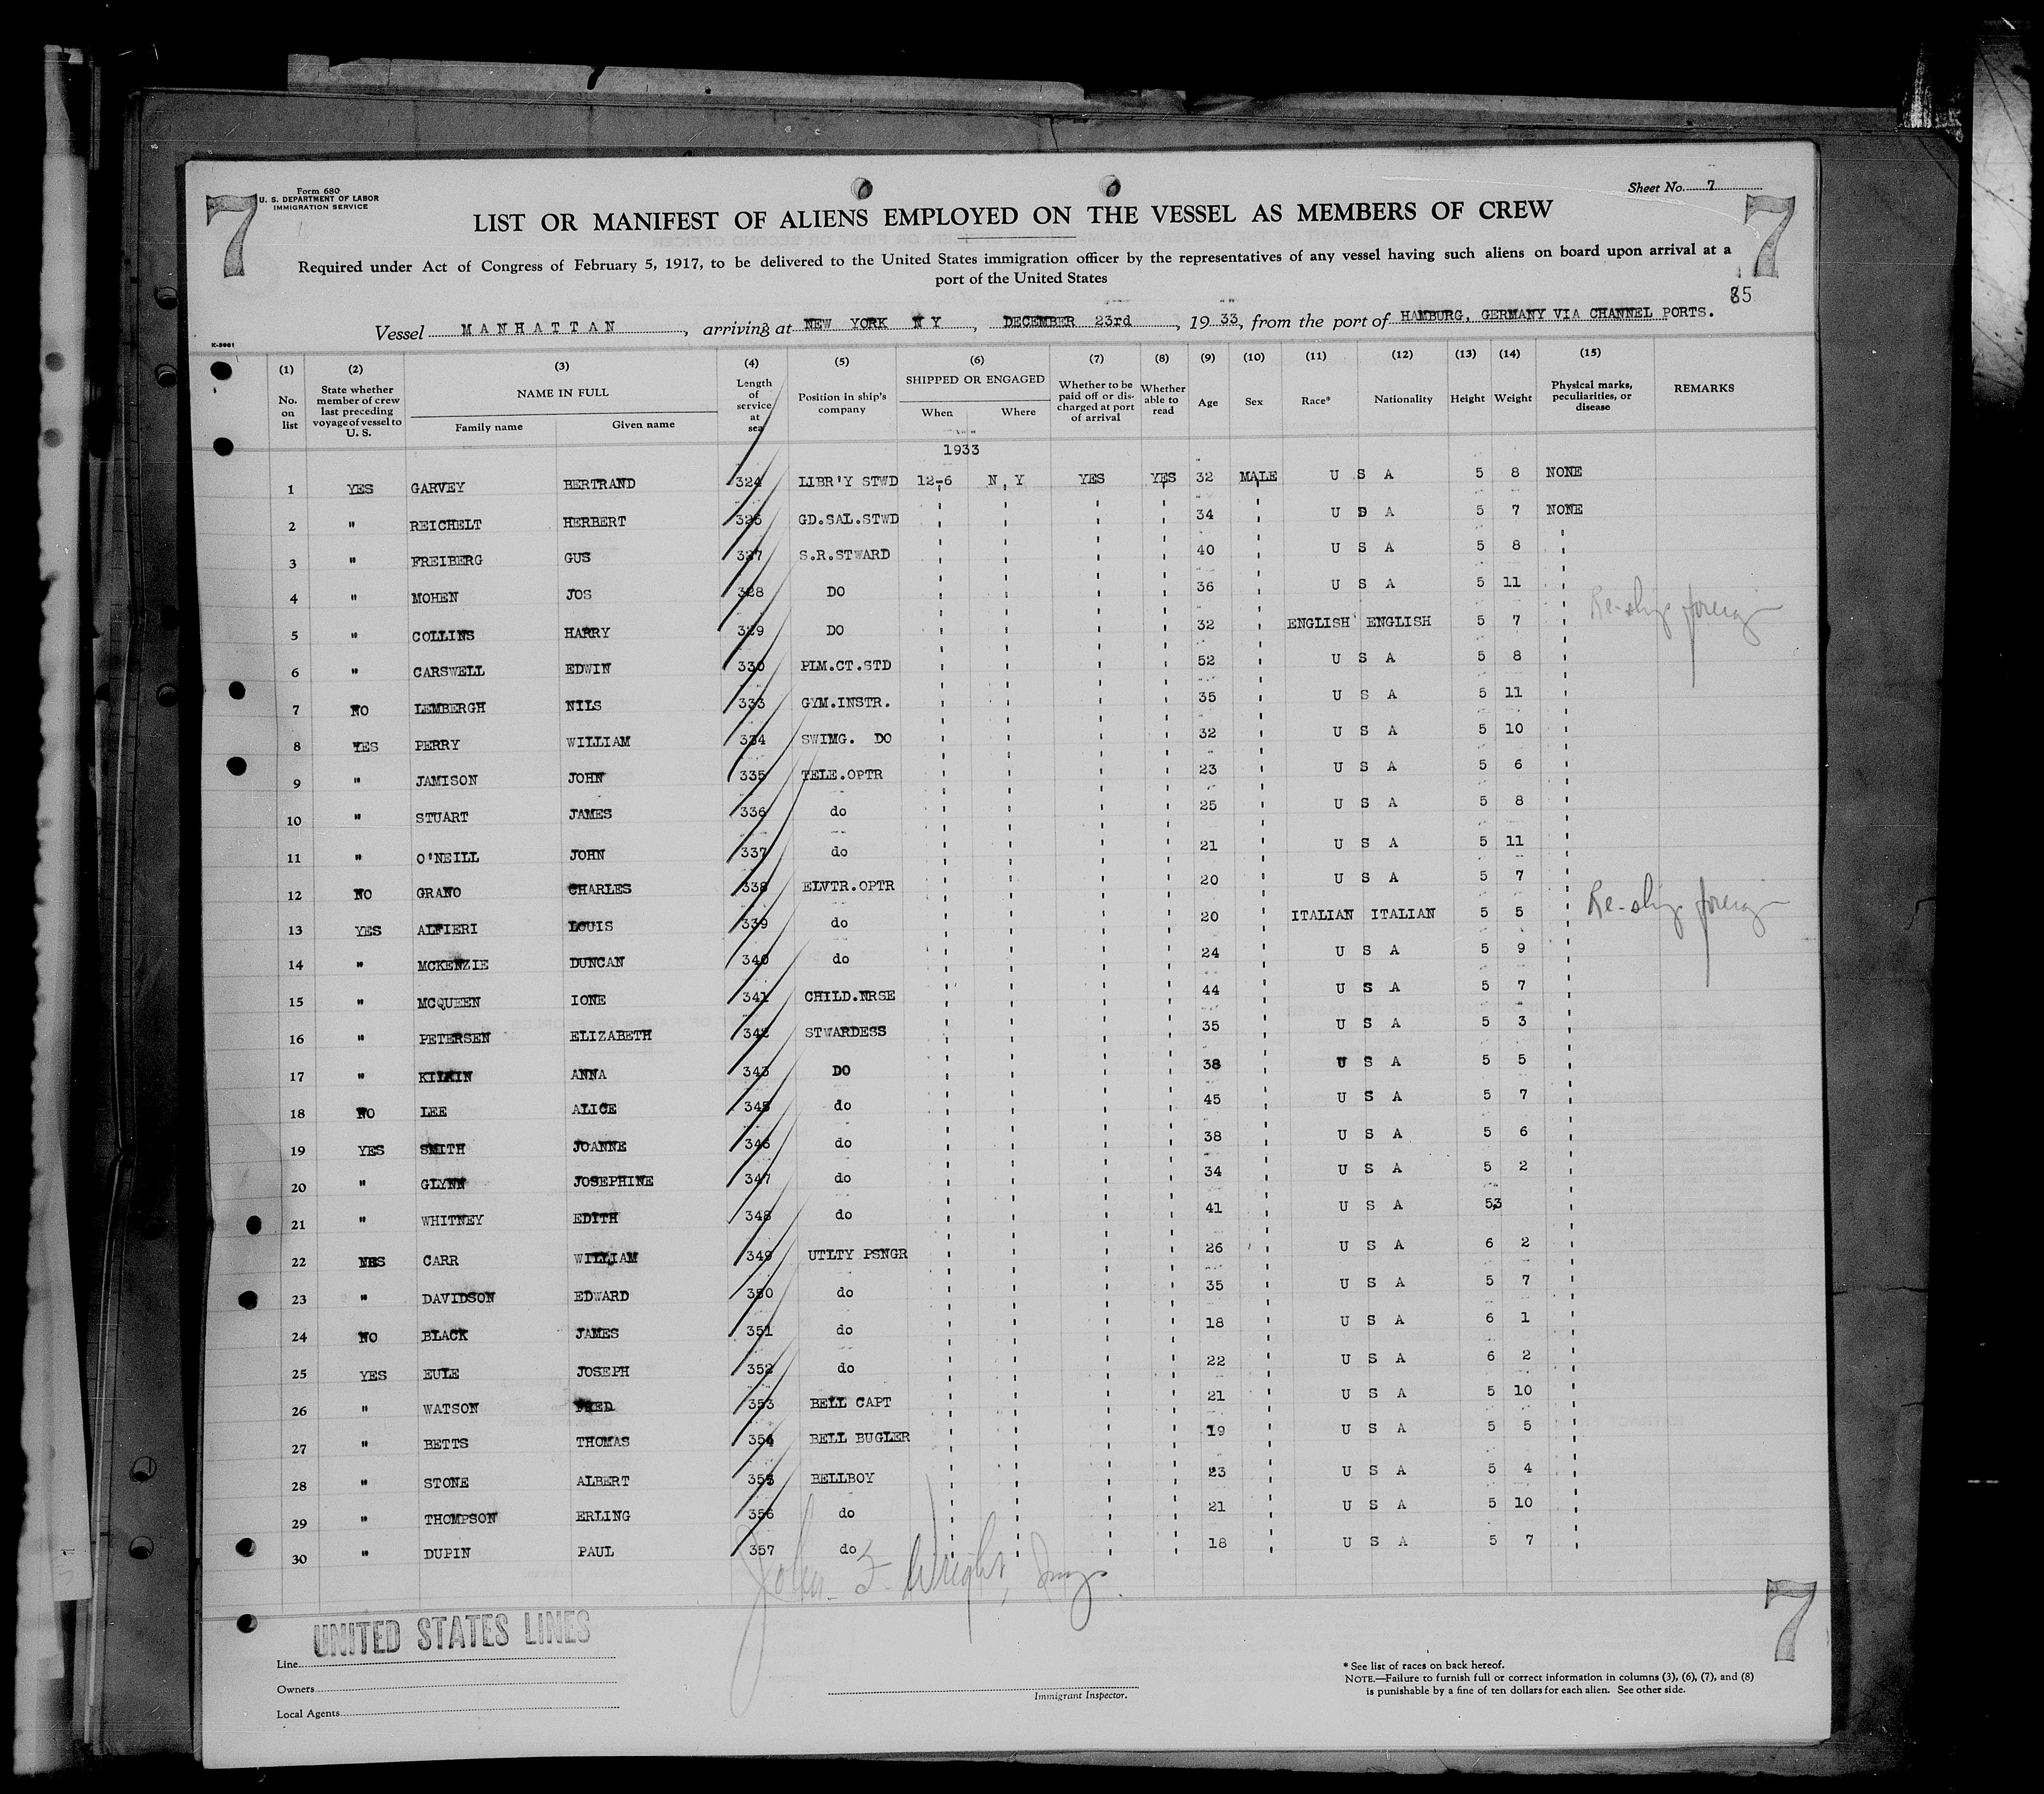 Form 680
U. S. DEPARTMENT OF LABOR
IMMIGRATION SERVICE
Sheet No. 7
7
7
LIST OR MANIFEST OF ALIENS EMPLOYED ON THE VESSEL AS MEMBERS OF CREW
Required under Act of Congress of February 5, 1917, to be delivered to the United States immigration officer by the representatives of any vessel having such aliens on board upon arrival at a
port of the United States
85
Vessel MANHATTAN, arriving at NEW YORK N Y, DECEMBER 23rd, 1933, from the port of HAMBURG, GERMANY VIA CHANNEL PORTS.
(1) No. on list (2) State whether member of crew last preceding voyage of vessel to U. S. (3) NAME IN FULL Family name Given name (4) Length of service at sea (5) Position in ship's company (6) SHIPPED OR ENGAGED When Where (7) Whether to be paid off or discharged at port of arrival (8) Whether able to read (9) Age (10) Sex (11) Race* (12) Nationality (13) Height (14) Weight (15) Physical marks, peculiarities, or disease REMARKS
1933
1 YES GARVEY BERTRAND 324 LIBR'Y STWD 12-6 N Y YES YES 32 MALE U S A 5 8 NONE
2 " REICHELT HERBERT 326 GD.SAL.STWD 34 U S A 5 7 NONE
3 " FREIBERG GUS 327 S.R.STWARD 40 U S A 5 8
4 " MOHEN JOS 328 DO 36 U S A 5 11
5 " COLLINS HARRY 329 DO 32 ENGLISH ENGLISH 5 7 Re-ship foreign
6 " CARSWELL EDWIN 330 PLM.CT.STD 52 U S A 5 8
7 NO LEMBERGH NILS 333 GYM.INSTR. 35 U S A 5 11
8 YES PERRY WILLIAM 334 SWIMG. DO 32 U S A 5 10
9 " JAMISON JOHN 335 TELE.OPTR 23 U S A 5 6
10 " STUART JAMES 336 do 25 U S A 5 8
11 " O'NEILL JOHN 337 do 21 U S A 5 11
12 NO GRANO CHARLES 338 ELVTR.OPTR 20 U S A 5 7
13 YES ALFIERI LOUIS 339 do 20 ITALIAN ITALIAN 5 5 Re-ship foreign
14 " MCKENZIE DUNCAN 340 do 24 U S A 5 9
15 " MCQUEEN IONE 341 CHILD.NRSE 44 U S A 5 7
16 " PETERSEN ELIZABETH 342 STWARDESS 35 U S A 5 3
17 " ANNA 343 DO 38 U S A 5 5
18 NO LEE ALICE 345 do 45 U S A 5 7
19 YES SMITH JOANNE 346 do 38 U S A 5 6
20 " GLYNN JOSEPHINE 347 do 34 U S A 5 2
21 " WHITNEY EDITH 348 do 41 U S A 53
22 CARR WILLIAM 349 UTLTY PSNGR 26 U S A 6 2
23 " DAVIDSON EDWARD 350 do 35 U S A 5 7
24 NO BLACK JAMES 351 do 18 U S A 6 1
25 YES EULE JOSEPH 352 do 22 U S A 6 2
26 " WATSON FRED 353 BELL CAPT 21 U S A 5 10
27 " BETTS THOMAS 354 BELL BUGLER 19 U S A 5 5
28 " STONE ALBERT 355 BELLBOY 23 U S A 5 4
29 " THOMPSON ERLING 356 do 21 U S A 5 10
30 " DUPIN PAUL 357 do 18 U S A 5 7
John F. Wright,
UNITED STATES LINES
Line
Owners
Local Agents
Immigrant Inspector.
* See list of races on back hereof.
NOTE.—Failure to furnish full or correct information in columns (3), (6), (7), and (8)
is punishable by a fine of ten dollars for each alien. See other side.
7